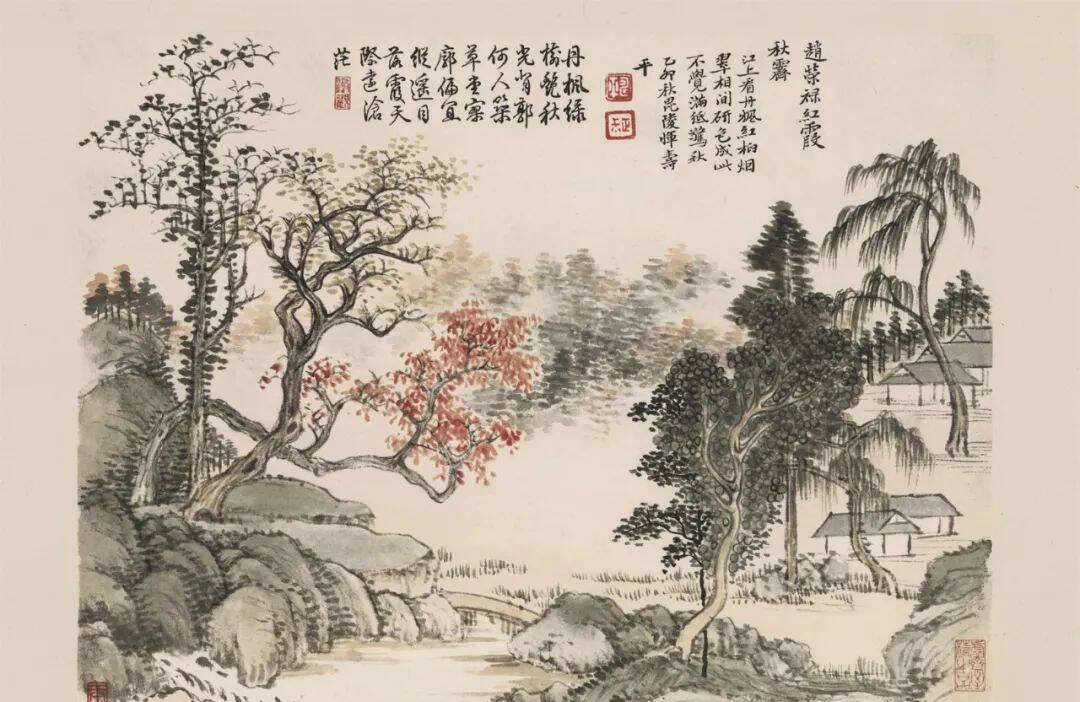 趙榮祿紅霞
秋霽
江上看丹楓紅柏烟
翠相間研色成此
不覺滿紙驚秋
乙卯秋毘陵惲壽
平
丹楓綠
樹秋
光背郭
何人築
草堂寥
廓偏宜
縱遙目
落霞天
際遠滄
茫